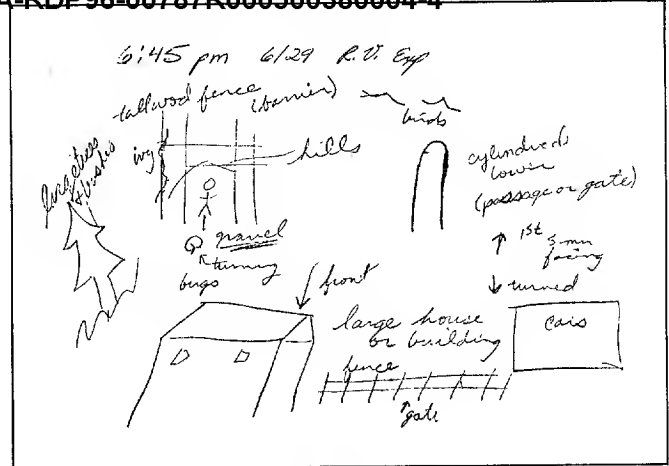 A-RDP96-00787R000500380004-4
6:45 pm 6/29 R.V. Exp
tall wood fence (barrier)
birds
ivy
hills
large trees
& bushes
cylindrical
tower
(passage or gate)
gravel
turning
bugs
front
1st
5 min
facing
turned
large house
or building
cars
fence
gate